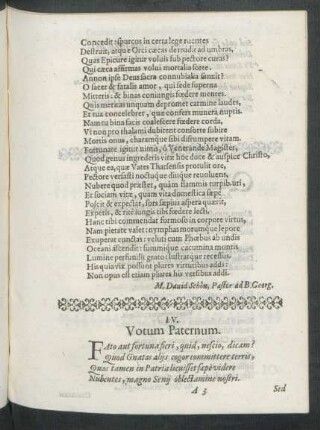 Concedit: spurcos in certa lege ruentes
Destruit, atque Orci cæcas detrudit ad umbras,
Quas Epicure igitur voluis sub pectore curas?
Qui cæca affirmas volui mortalia sorte.
Annon ipse Deus sacra connubialia sanxit?
O sacer & fatalis amor, qui sede superna
Mitteris: & binas coniungis fœdere mentes.
Quis meritas unquam depromet carmine laudes,
Et tua concelebret, quæ confers munera, nuptis.
Nam tu bina facis coalescere fœdere corda,
Vt non pro thalami dubitent consorte subire
Mortis onus, charamque sibi disrumpere vitam.
Fortunate igitur nimis, ô Venerande Magister,
Quod genus ingrederis vitæ hoc duce & auspice Christo,
Atque ea, quæ Vates Tharsensis protulit ore,
Pectore versasti noctuque diuque revoluens,
Nubere quod præstet, quàm flammis
Et sociam vitæ, quam vita domestica sæpe
Poscit & expectat, sors sæpius aspera quærit,
Expetis, & rite iungis tibi fœdere lecti.
Hanc tibi commendat formoso in corpore virtus,
Nam pietate valet: nymphas morumque lepore
Exuperat cunctas: veluti cum Phœbus ab undis
Oceani ascendit: summaque cacumina montis
Lumine persundis grato: illustratque recessus.
Hisquia vix possint plures virtutibus addi:
Non opus est etiam plures his versibus addi.
M. David Schön, Pastor ad B. Georg.
IV.
Votum Paternum.
FAto aut fortuna fieri, quid, nescio, dicam?
Quòd Gnatas alijs cogor committere terris,
Quas tamen in Patria licuisset sæpè videre
Nubentes, magno Senij oblectamine nostri.
A 3
Sed